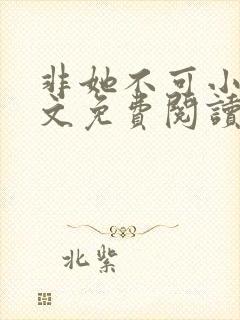 非她不可小
文免費閱讀
北紫